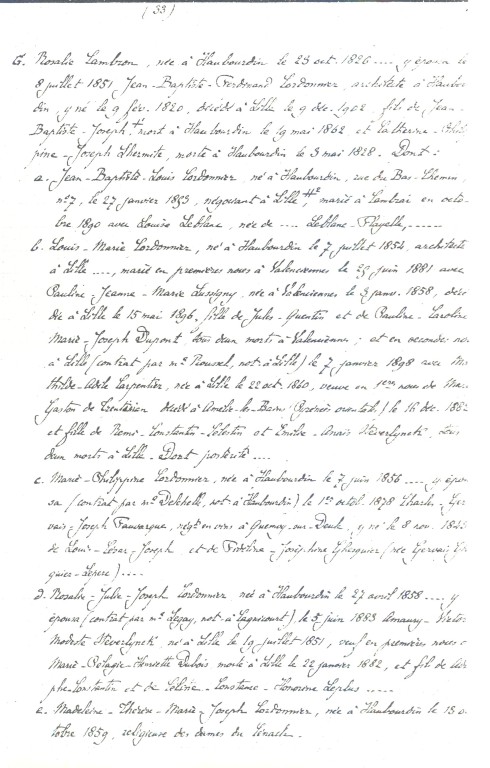 (33)
G. Rosalie Lambson, née à Haubourdin le 23 oct. 1826 .... y épousa le
8 juillet 1851 Jean-Baptiste-Ferdinand Cordonnier, architecte à Haubour
din, y né le 9 fév. 1820, décédé à Lille le 9 déc. 1902, fils de Jean-
Baptiste-Joseph mort à Haubourdin le 19 mai 1862 et Catherine-Phil
pine-Joseph Lhermite, morte à Haubourdin le 3 mai 1828. Dont :
a. Jean-Baptiste-Louis Cordonnier, né à Haubourdin, rue du Bas-Chemin,
n° 7, le 27 janvier 1853, négociant à Lille, marié à Cambrai en octo-
bre 1890 avec Louise Leblanc, née de .... Leblanc-Playelle, ......
b. Louis-Marie Cordonnier, né à Haubourdin le 7 juillet 1854, architecte
à Lille ...., marié en premières noces à Valenciennes le 25 juin 1881 avec
Pauline-Jeanne-Marie Lussigny, née à Valenciennes le 3 janv. 1858, décé
dée à Lille le 15 mai 1896, fille de Jules-Quentin et de Pauline-Caroline
Marie-Joseph Dupont, tous deux morts à Valenciennes ; et en secondes no
à Lille (contrat par m° Roussel, not. à Lille) le 7 janvier 1898 avec Ma
thilde-Adèle Carpentier, née à Lille le 22 oct. 1860, veuve en 1res noces de
Gaston de decédé à Amélie-les-Bains (Pyrénées orientales) le 16 déc. 1882
et fille de Remi-Constantin-Célestin et Emilie-Anaïs Steverlynck, tous
deux morts à Lille. Dont postérité ....
c. Marie-Philippine Cordonnier, née à Haubourdin le 7 juin 1856 .... y épou
sa (contrat par m° not. à Haubourdin) le 1er octob. 1878 Charles-Ger
vais-Joseph Fauvarque, négt en vins à Quesnoy-sur-Deule, y né le 8 nov. 1843
de Louis-César-Joseph et de Fidéline-Joséphine Ghesquier (née Gervais
quier-Lepers) ....
d. Rosalie-Julie-Joseph Cordonnier née à Haubourdin le 27 avril 1858 .... y
épousa (contrat par m° not. à ) le 5 juin 1883 Amaury-Victor
Modeste Steverlynck, né à Lille le 19 juillet 1851, veuf en premières noces
Marie-Pélagie-Henriette Dubois morte à Lille le 22 janvier 1882, et fils de
phe-Constantin et de Célinie-Constance-Honorine Leplus .....
e. Madeleine-Thérèse-Marie-Joseph Cordonnier, née à Haubourdin le 13 o-
tobre 1859, religieuse des dames du Cénacle.